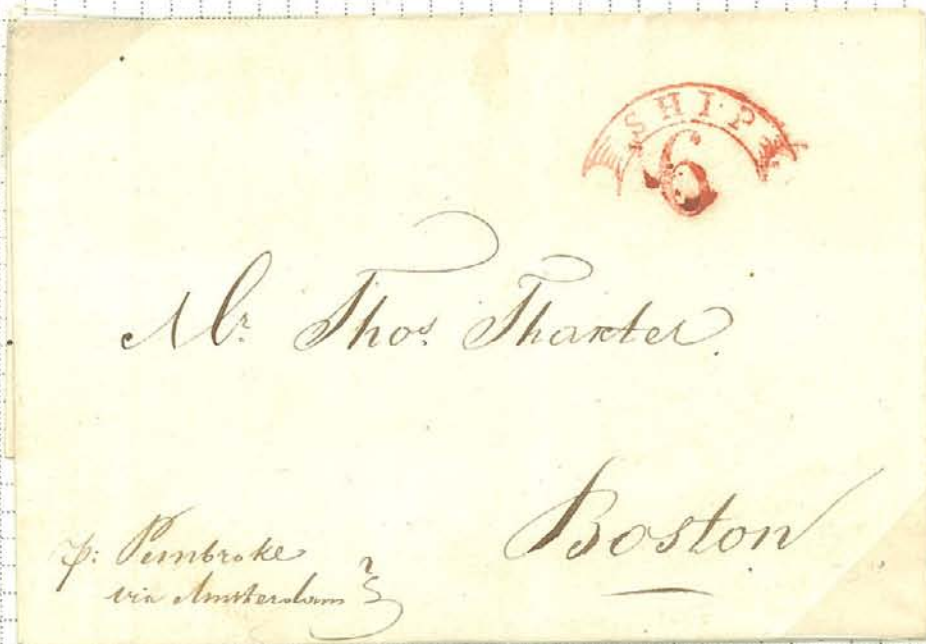 SHIP
6
Mr. Thos. Thaxter.
Boston
p: Pembroke
via Amsterdam